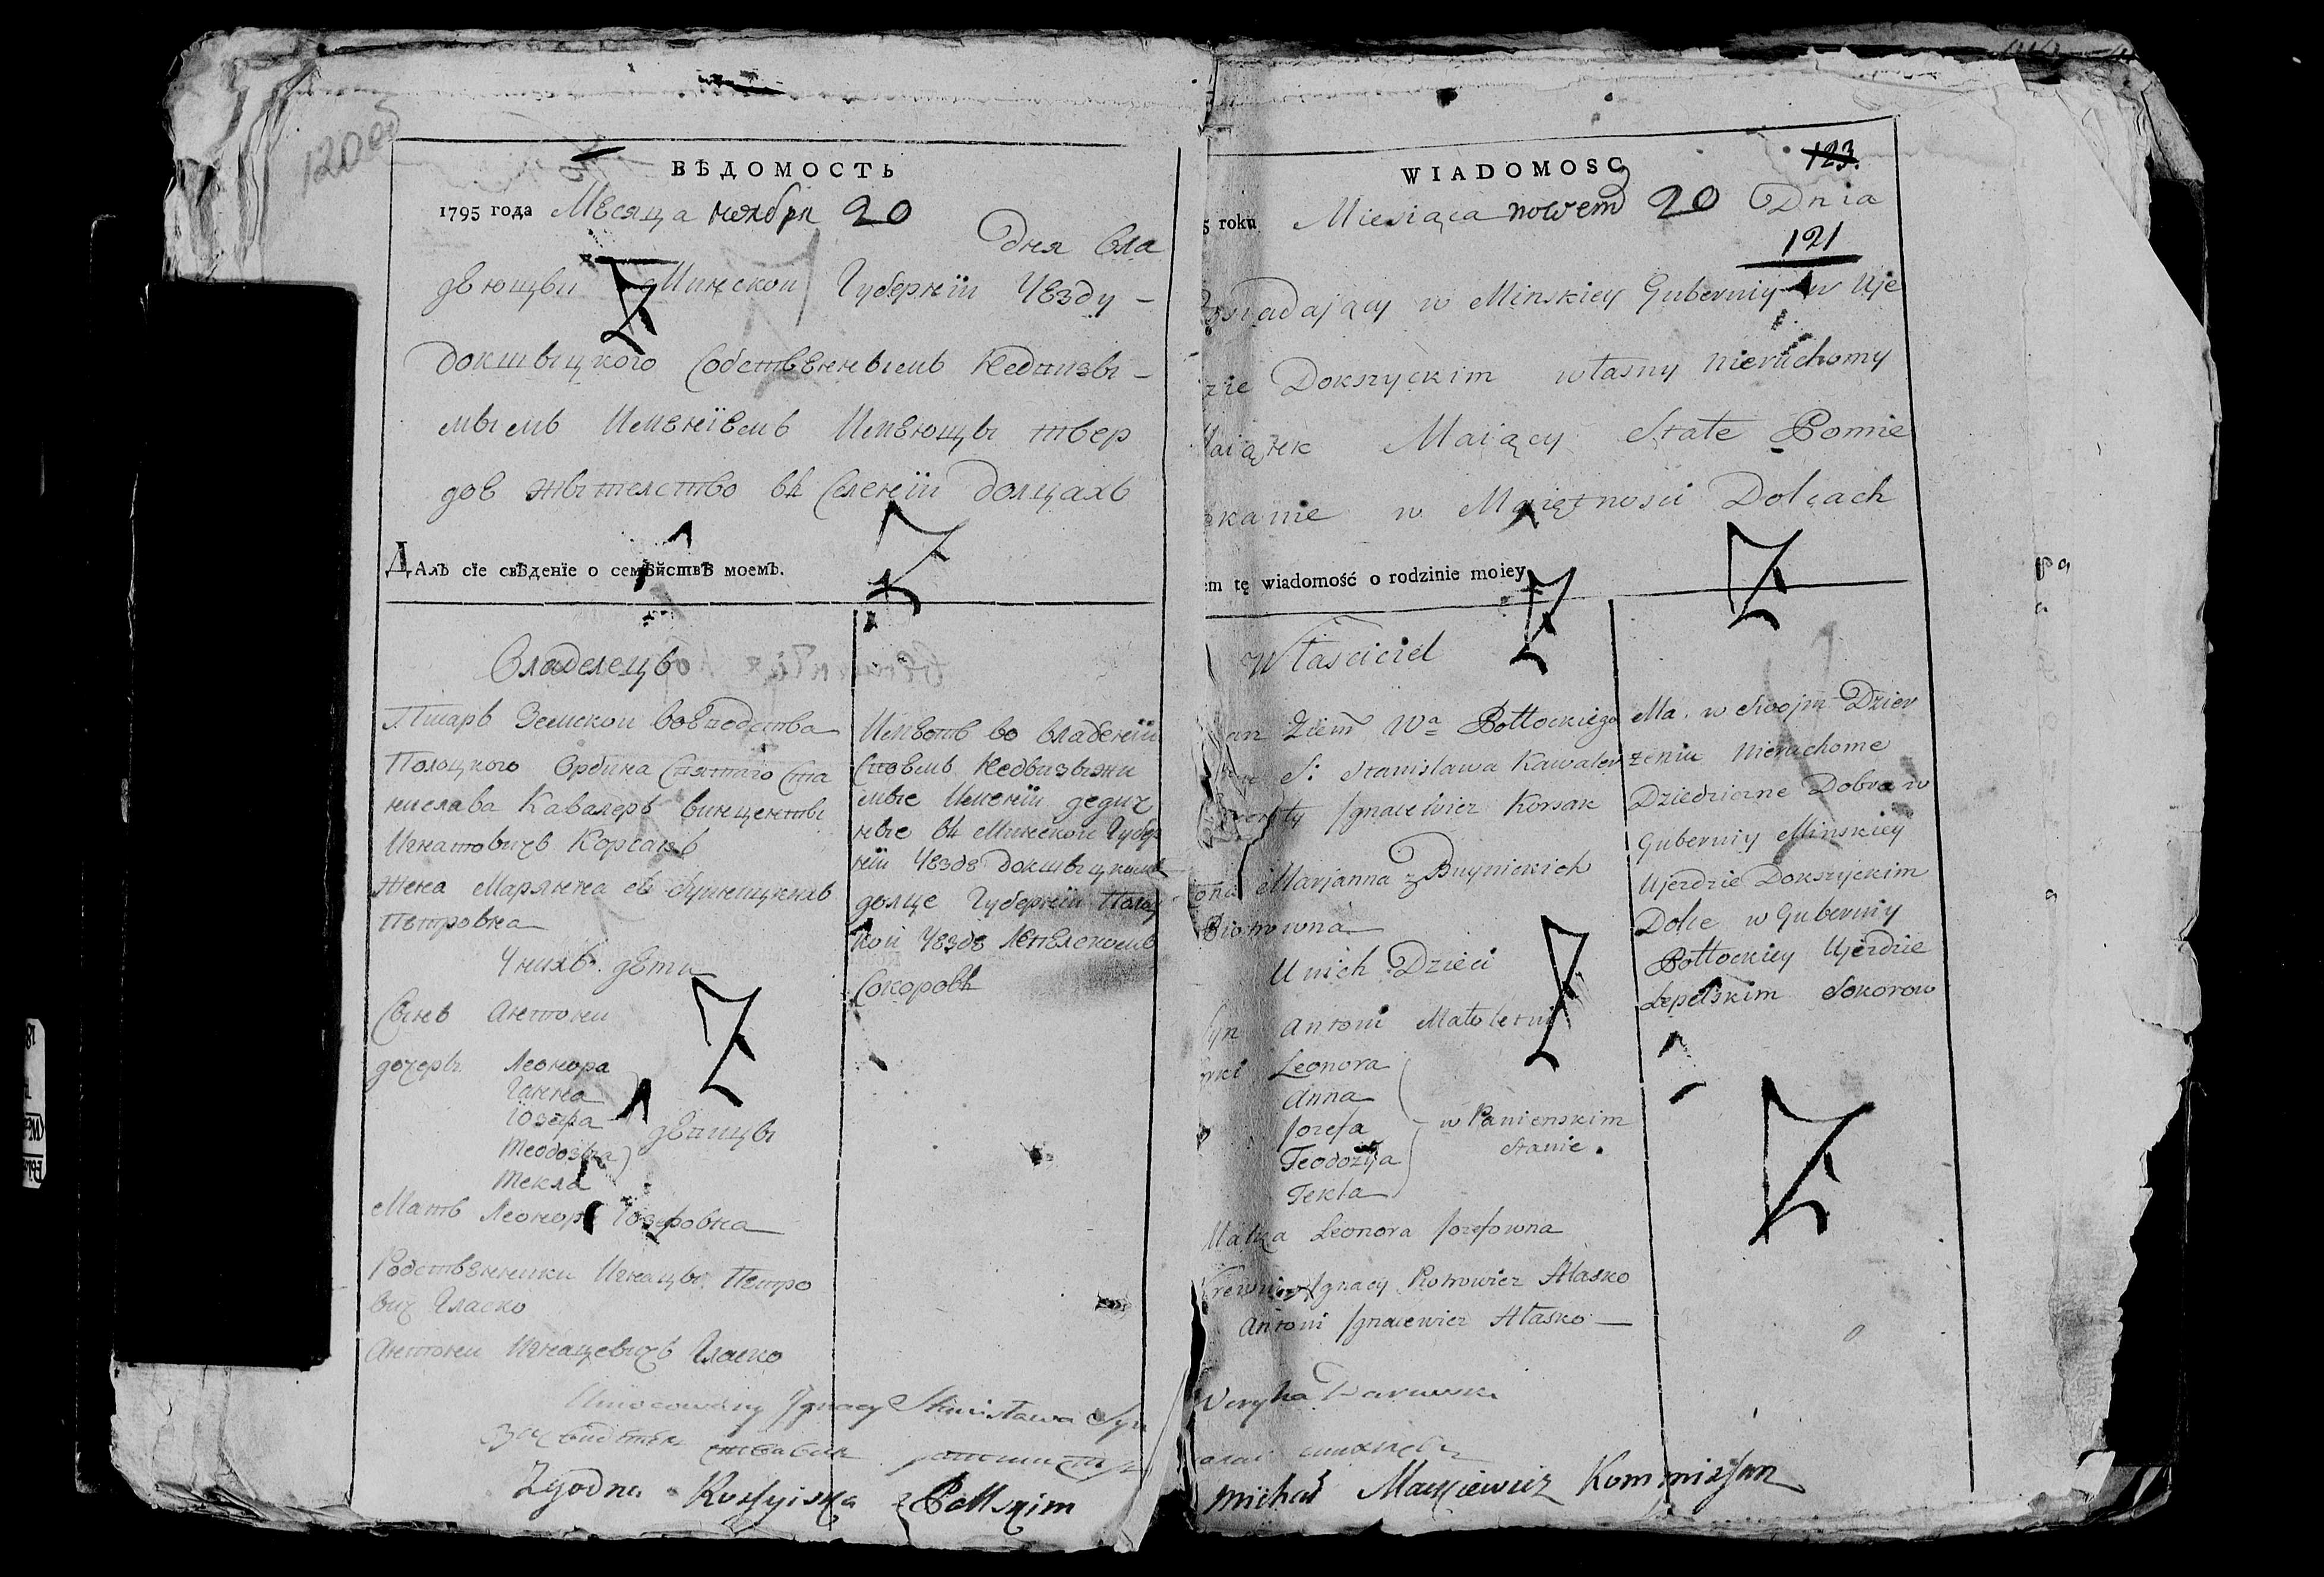 120об
ВѢДОМОСТЬ
1795 года Месяца ноября 20
Дня Вла
деющъи Минской Губернїи Уезду –
докшъıцкого Собственнъıмъ Недвизъı –
мъıмъ Именїемъ Имеющъı твер
дое жъıтелство въ Селенїи долцахъ
ДАлъ сїе свѣденїе о семѣйствѣ моемъ.
Владелецъ
Писаръ Земскои воеводства
Полоцкого Ордина Святаго Ста
нислава Кавалеръ винцентъı
Игнатовичъ Корсакъ
жена Марянна съ буйницкихъ
Петровна
У нихъ дети
Съıнъ Антони
дочеръ Леонора
Ганна
Їозефа
Теодозъıа
Текла
девицъı
Мать Леонора Їозефовна
Родственники Игнацъı Петро
вич Гласко
Антони Игнацевичъ Гласко
Имеетъ во владенїи
Своемъ Недвизъıмъ
мъıе Именїи дедич
нъıе въ Минской Губер
нїи Уезде докшъıцкимъ
долце Губернїи Полоц
кой Уезде Лепелскомъ
Сокоровъ
Umocowany Ignacy Stanisława Syn
Zgodna Rossyiska z Polskim
WIADOMOSC
123.
5 roku Miesiąca nowem 20 Dnia
121
osiadający w Minskiey Guberniy w Uje
zie Dokszyckim własny nieruchomy
aiątek Maiący Stałe Pomie
kanie w Maiętnosci Dolcach
em tę wiadomość o rodzinie moiey
Własciciel
Ziem Wa Połłockiego
S: Stanisława Kawaler
Ignacewicz Korsak
ona Marjanna z Buynickich
Piotrowna
U nich Dzieci
Syn Antoni Małoletni
Leonora
Anna
Jozefa
Teodozyja
Tekla
w Panienskim
Stanie.
Matka Leonora Jozefowna
Krewni Ignacy Piotrowicz Hlasko
Antoni Ignacewicz Hlasko
Ma. w Swojm Dzier
żeniu Nieruchome
Dziedziczne Dobra w
Guberniy Minskiey
Ujezdzie Dokszyckim
Dolce w Guberniy
Połłockiey Ujezdzie
Lepelskim Sokorow
Weryha Darewski
Michał Mackiewicz Kommissarz